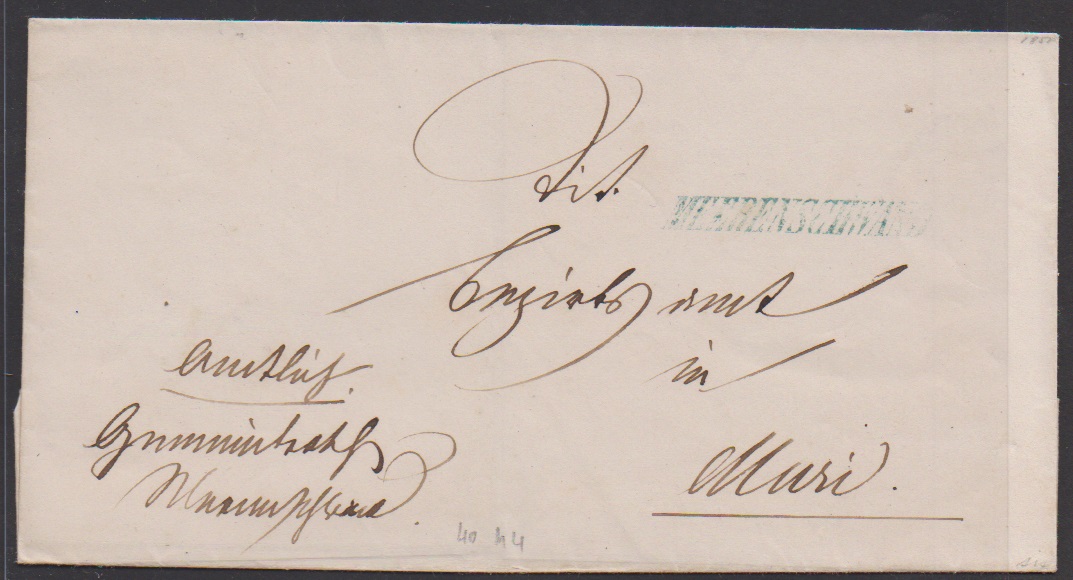 Tit.
MEERENSCHWAND
Bezirksamt
in
Muri.
Amtlich.
Gemeinderath
Merenschwand.
40 44